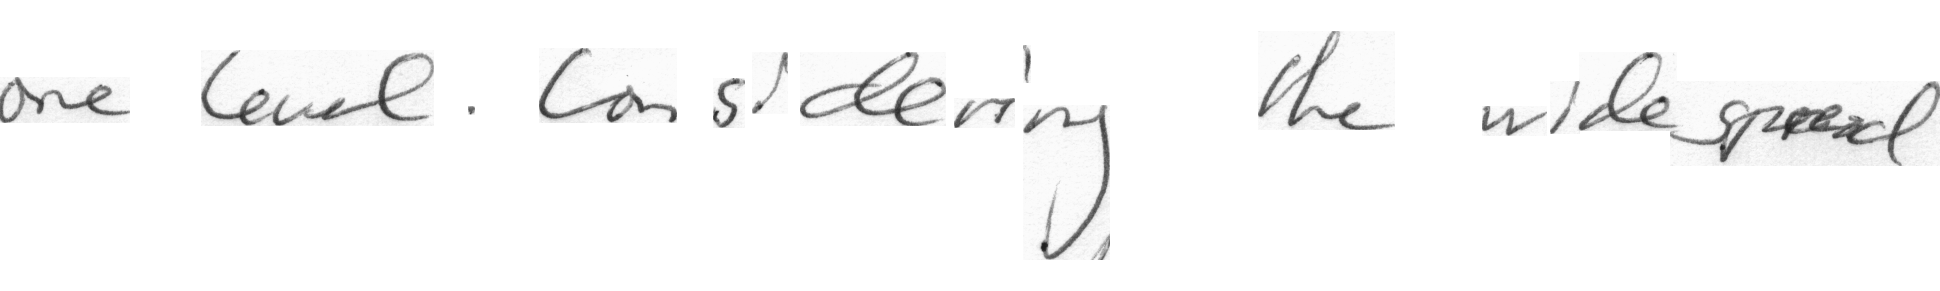 one level. Considering the widespread